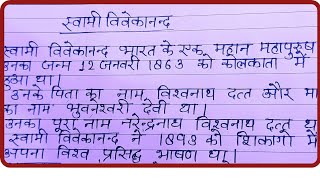 स्वामी विवेकानन्द
स्वामी विवेकानन्द भारत के एक महान महापुरुष
उनका जन्म 12 जनवरी 1863 को कोलकाता में
हुआ था।
उनके पिता का नाम विश्वनाथ दत्त और मा
का नाम भुवनेश्वरी देवी था।
उनका पूरा नाम नरेन्द्रनाथ विश्वनाथ दत्त थ
स्वामी विवेकानन्द ने 1893 को शिकागो में
अपना विश्व प्रसिद्ध भाषण था।